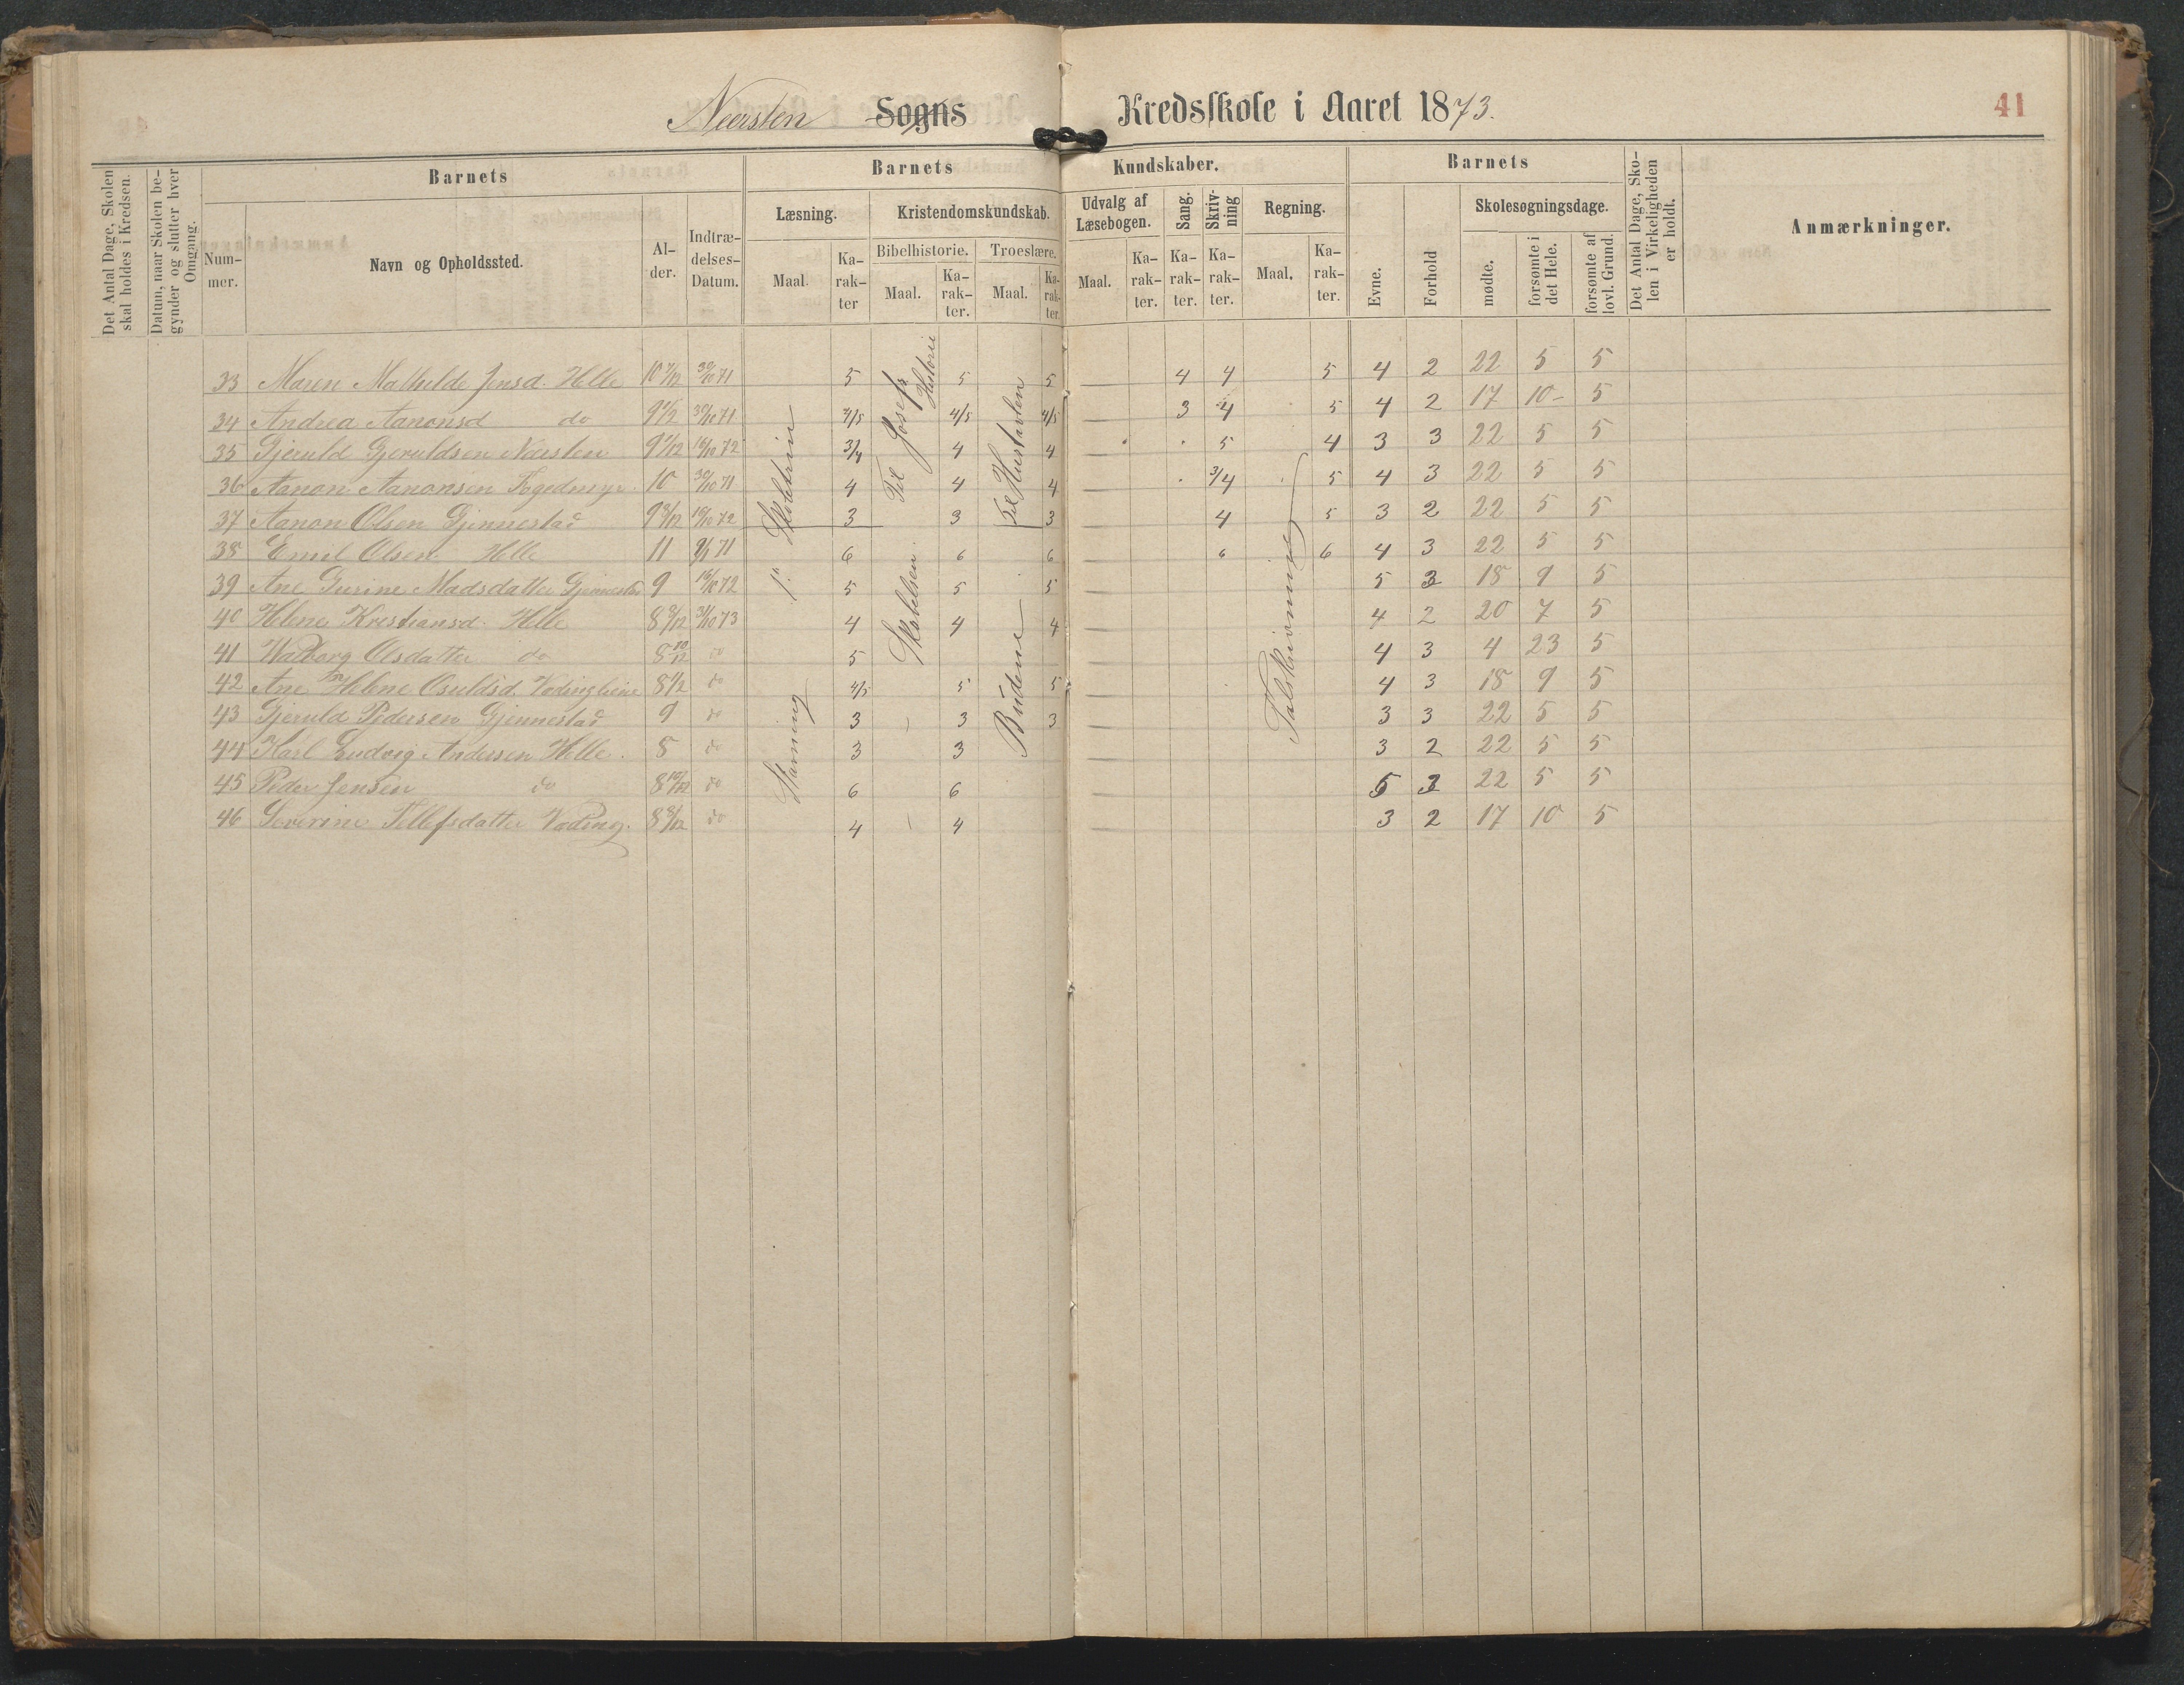 Neersten Sogns Kredsskole i Aaret 1873.
41
Det Antal Dage, Skolen skal holdes i Kredsen.
Datum, naar Skolen begynder og slutter hver Omgang.
Barnets
Nummer.
Navn og Opholdssted.
Alder.
Indtrædelses-Datum.
Barnets Kundskaber.
Læsning.
Maal.
Karakter
Kristendomskundskab.
Bibelhistorie.
Maal.
Karakter.
Troeslære.
Maal.
Karakter.
Udvalg af Læsebogen.
Maal.
Karakter.
Sang.
Karakter.
Skrivning
Karakter.
Regning.
Maal.
Karakter.
Barnets
Evne.
Forhold
Skolesøgningsdage.
mødte.
forsømte i det Hele.
forsømte af lovl. Grund.
Det Antal Dage, Skolen i Virkeligheden er holdt.
Anmærkninger.
33 Maren Mathilde Jensd. Helle 10 7/12 30/10 71 5 5 5 4 4 5 4 2 22 5 5
34 Andrea Aanonsd do 9 1/2 30/10 71 4/5 4/5 4/5 3 4 5 4 2 17 10 5
35 Gjeruld Gjeruldsen Neersten 9 1/12 16/10 72 3/4 4 4 5 4 3 3 22 5 5
36 Aanon Aanonsen 10 30/10 71 4 4 4 3/4 5 4 3 22 5 5
37 Aanon Olsen Gjennestad 16/10 72 3 3 3 4 5 3 2 22 5 5
38 Emil Olsen Helle 11 71 6 6 6 6 6 4 3 22 5 5
39 Ane Gurine Madsdatter Gjennestad 9 16/10 72 5 5 5 5 3 18 9 5
40 Helene Kristiansd. Helle 8 9/12 31/10 73 4 4 4 4 2 20 7 5
41 Walborg Olsdatter do 8 10/12 do 5 4 3 4 23 5
42 Ane Helene Osuldsd. 8 1/2 do 4/5 5 5 4 3 18 9 5
43 Gjeruld Pedersen Gjennestad 9 do 3 3 3 3 3 22 5 5
44 Karl Ludvig Andersen Helle. 8 do 3 3 3 2 22 5 5
45 Peder Jensen do 8 10/12 do 6 6 5 3 22 5 5
46 Severine Tellefsdatter Væding. 8 9/12 do 4 4 3 2 17 10 5
1ste Skoletrin
Stavning
Til Josefs Historie
Skabelsen
Til Hustavlen
Budene
Talskrivning